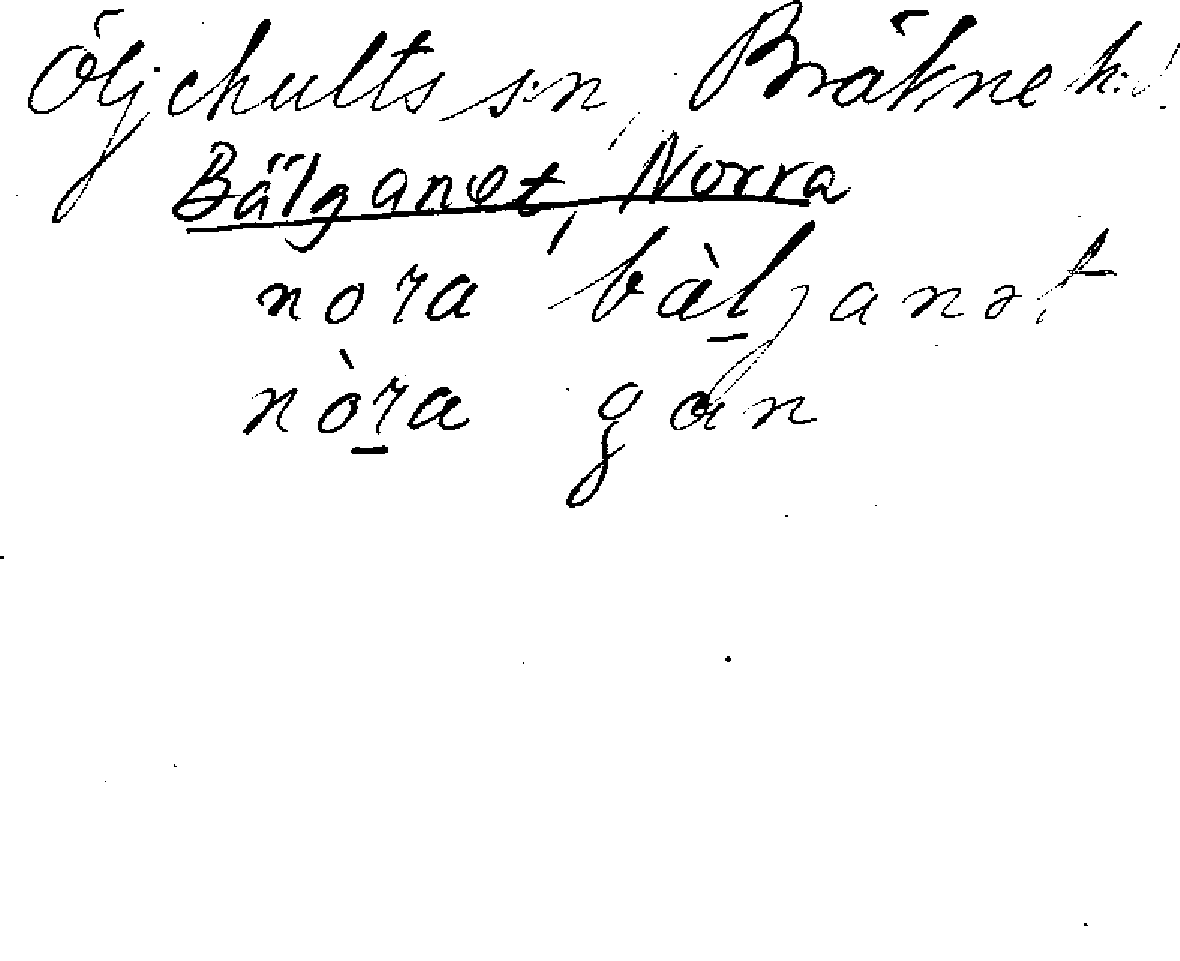 Öljehults s:n, Bräkne h:d
Bälganet, Norra
nora bàl̲ganət
nòr̲a gan